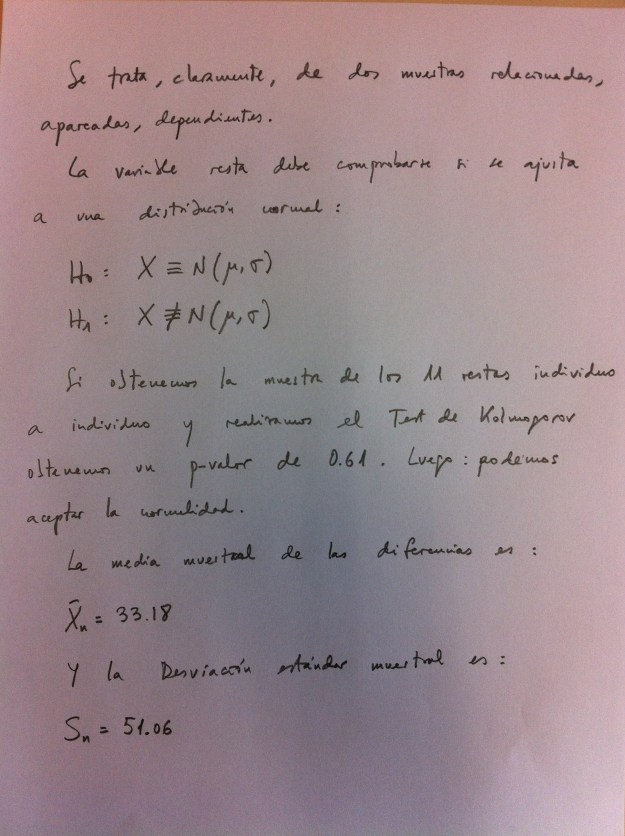 Se trata, claramente, de dos muestras relacionadas,
apareadas, dependientes.
La variable resta debe comprobarse si se ajusta
a una distribución normal:
H₀: X ≡ N(μ,σ)
H₁: X ≢ N(μ,σ)
Si obtenemos la muestra de los 11 restas individuo
a individuo y realizamos el Test de Kolmogorov
obtenemos un p-valor de 0.61. Luego: podemos
aceptar la normalidad.
La media muestral de las diferencias es:
X̄ₙ = 33.18
Y la Desviación estándar muestral es:
Sₙ = 51.06